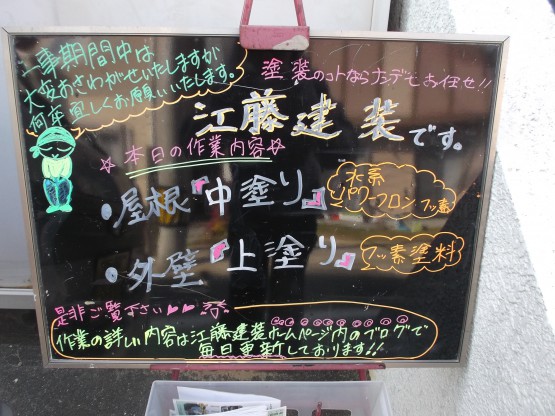 工事期間中は
大変おさわがせいたしますが
何卒宜しくお願いいたします。
塗装のコトならナンデモお任せ!!
江藤建装です。
☆本日の作業内容☆
・屋根『中塗り』
水系
パワーフロンフッ素
・外壁『上塗り』
フッ素塗料
是非ご覧下さい♥♥
作業の詳しい内容は江藤建装ホームページ内のブログで
毎日更新しております!!